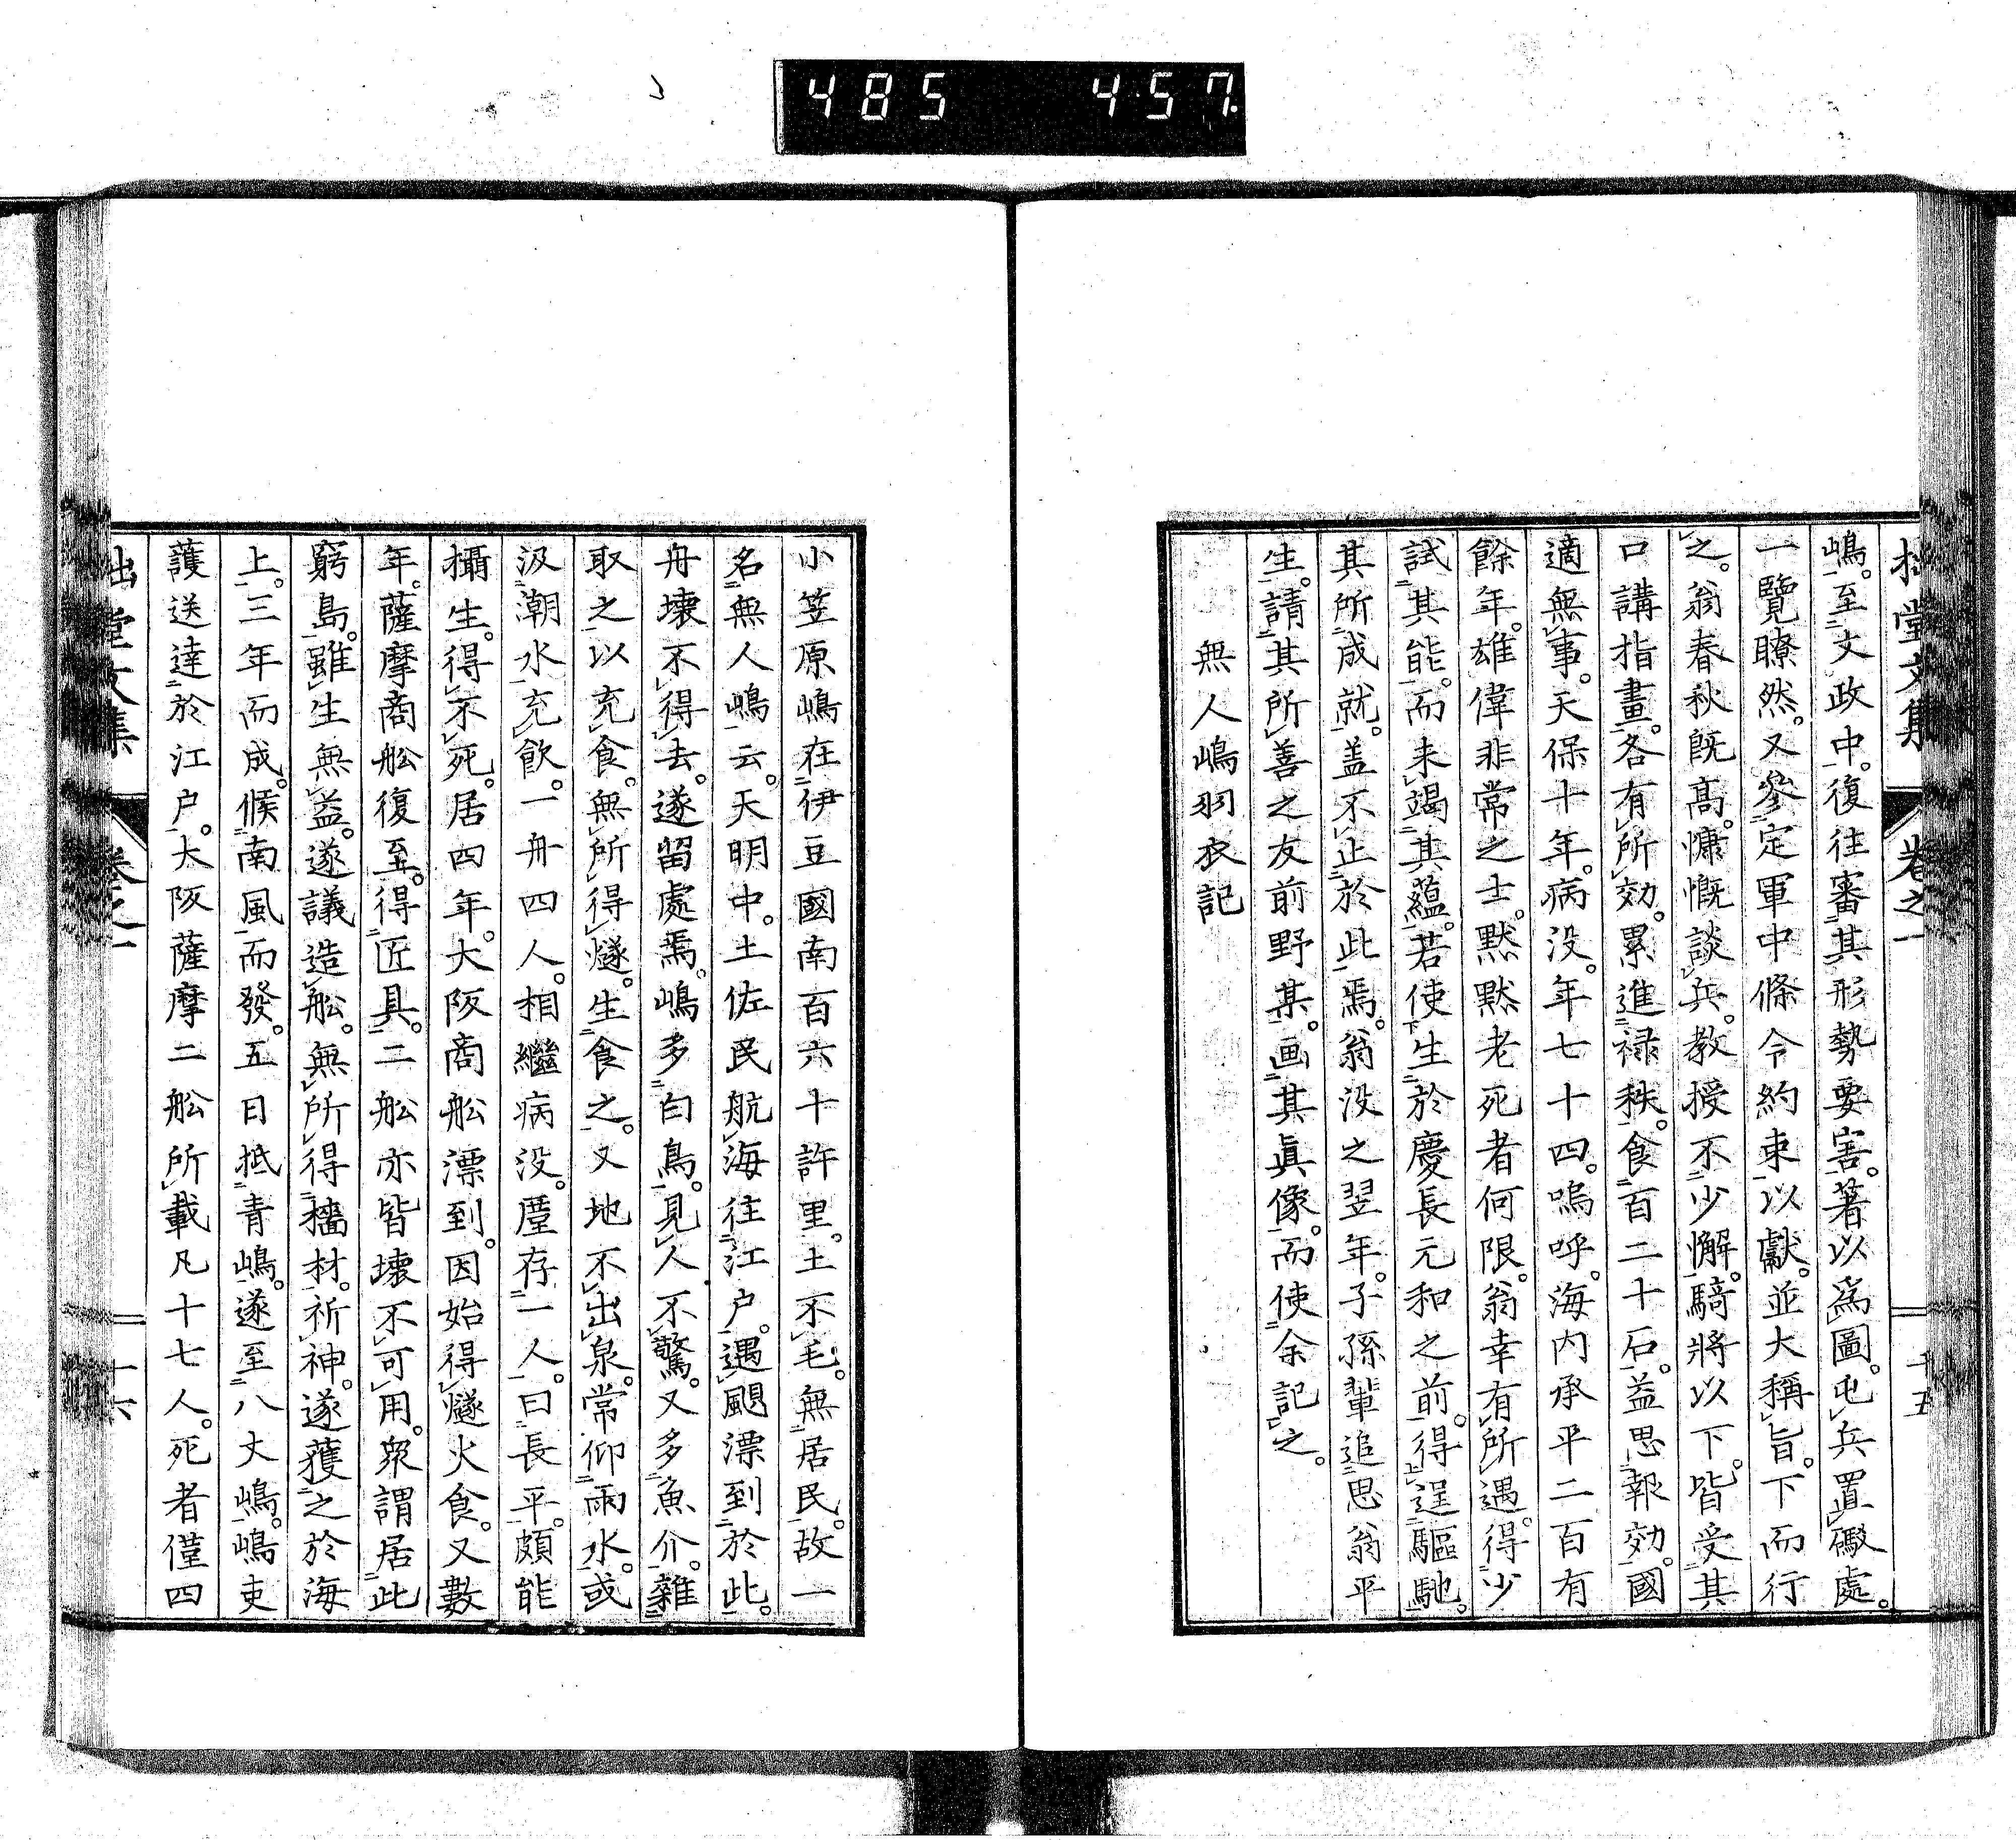 485 457
拙堂文集 卷之一 十五
嶋。至文政中。復往審其形勢要害。著以爲圖。屯兵置礮處。
一覽瞭然。又參定軍中條令約束以獻。並大稱旨。下而行
之。翁春秋既髙。慷慨談兵。教授不少懈。騎將以下。皆受其
口講指畫。各有所効。累進禄秩。食百二十石。益思報効。國
適無事。天保十年。病没。年七十四。嗚呼。海内承平二百有
餘年。雄偉非常之士。黙黙老死者何限。翁幸有所遇。得少
試其能。而未竭其蘊。若使生於慶長元和之前。得逞驅馳。
其所成就。盖不止於此焉。翁没之翌年。子孫輩追思翁平
生。請其所善之友前野某。画其眞像。而使余記之。
無人嶋羽衣記
小笠原嶋在伊豆國南百六十許里。土不毛。無居民。故一
名無人嶋云。天明中。土佐民航海往江戸。遇颶漂到於此。
舟壊不得去。遂留處焉。嶋多白鳥。見人不驚。又多魚介。雜
取之以充食。無所得燧。生食之。又地不出泉。常仰雨水。或
汲潮水充飮。一舟四人。相繼病没。廑存一人。曰長平。頗能
攝生。得不死。居四年。大阪商舩漂到。因始得燧火食。又數
年。薩摩商舩復至。得匠具。二舩亦皆壊不可用。衆謂居此
窮島。雖生無益。遂議造舩。無所得檣材。祈神。遂獲之於海
上。三年而成。候南風而發。五日抵青嶋。遂至八丈嶋。嶋吏
護送達於江戸。大阪薩摩二舩所載凡十七人。死者僅四
拙堂文集 卷之一 十六